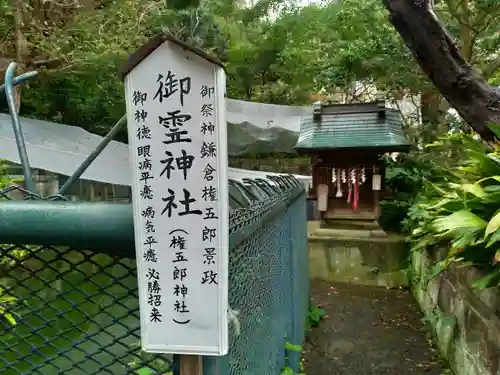 御祭神鎌倉権五郎景政
御霊神社(権五郎神社)
御神徳眼病平癒病気平癒必勝招来